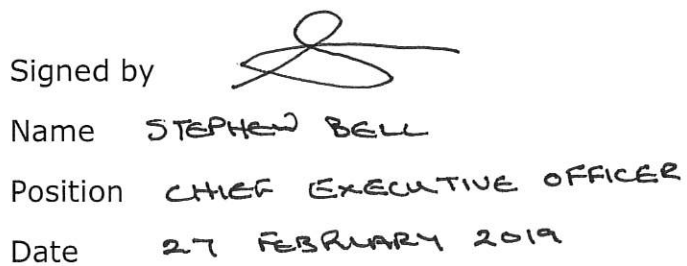 Signed by
Name STEPHEN BELL
Position CHIEF EXECUTIVE OFFICER
Date 27 FEBRUARY 2019